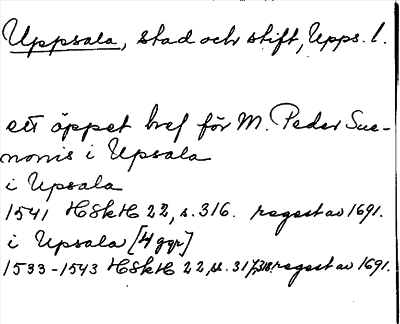 Uppsala, stad och stift, Upps. l.
ett öppet bref för M. Peder Sue-
nonis i Upsala
i Upsala
1541 HSkH 22, s. 316. regest av 1691.
i Upsala [4 ggr]
1533-1543 HSkH 22, ss. 317, 318. regest av 1691.